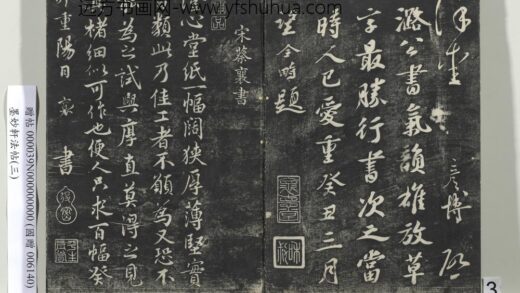 远方书画网-www.yftshuhua.com
彥博 啟
潞公書氣韻雄放草
字最勝行書次之當
時人已愛重癸丑三月
題
宋蔡襄書
心堂紙一幅闊狹厚薄堅實
類此乃佳工者不願為又恐不
為之試與厚直莫得之見
楮細似可作也便人只求百幅癸
卯重陽日 襄 書
贈帖 000039N000000000 (國贈 006140)
墨妙軒法帖(三)
3